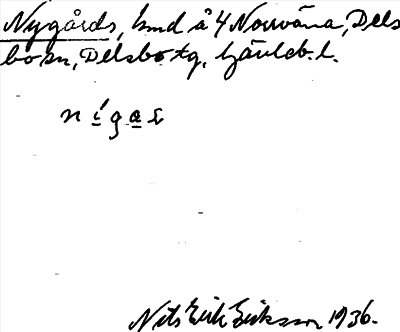 Nygårds, hmd å 4 Norrväna, Dels
bo sn, Delsbo tg, Gävleb. l.
n í g a s
Nils Erik Eriksson 1936.